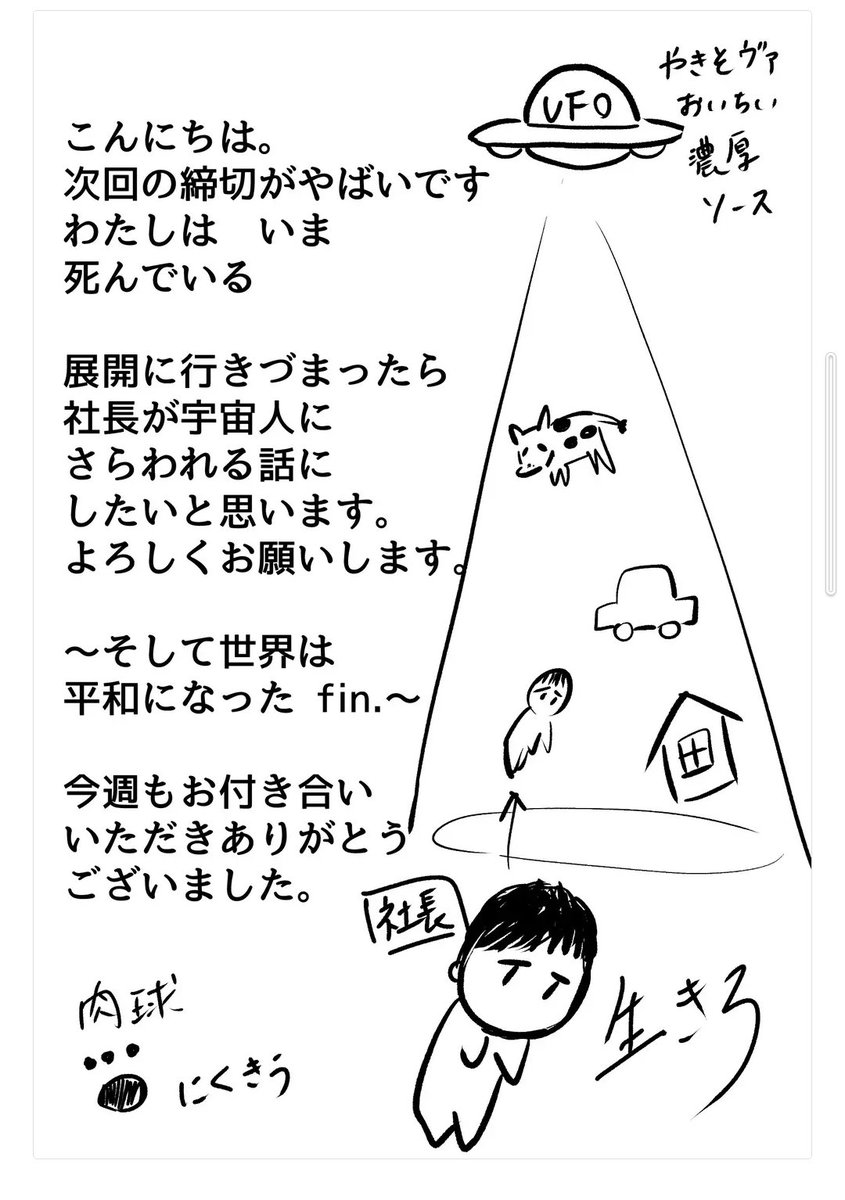 こんにちは。
次回の締切がやばいです
わたしは　いま
死んでいる
展開に行きづまったら
社長が宇宙人に
さらわれる話に
したいと思います。
よろしくお願いします。
〜そして世界は
平和になった fin.〜
今週もお付き合い
いただきありがとう
ございました。
UFO
やきそヴァ
おいちい
濃厚
ソース
社長
生きろ
肉球
にくきう